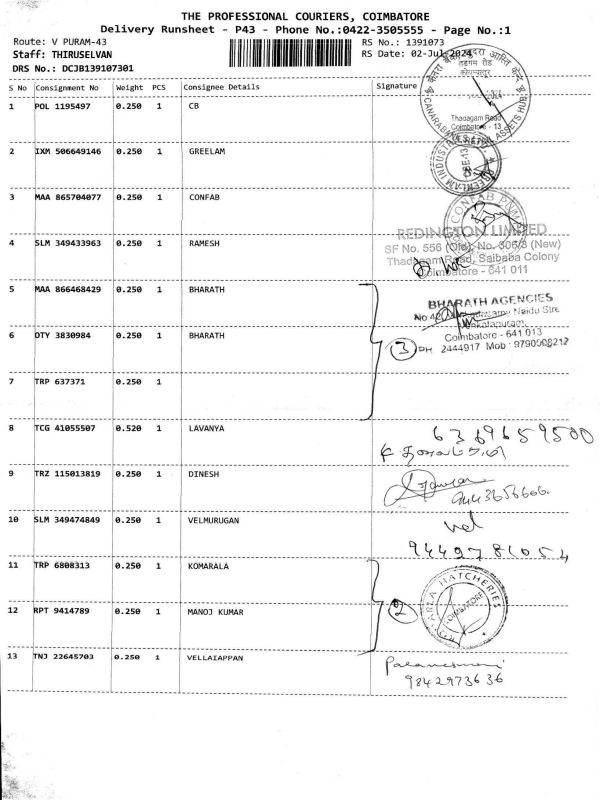 THE PROFESSIONAL COURIERS, COIMBATORE
Delivery Runsheet - P43 - Phone No.:0422-3505555 - Page No.:1
Route: V PURAM-43 RS No.: 1391073
Staff: THIRUSELVAN RS Date: 02-Jul-2024
DRS No.: DCJB139107301
S No Consignment No Weight PCS Consignee Details Signature
1 POL 1195497 0.250 1 CB
Thadagam Road
Coimbatore - 13
2 IXM 506649146 0.250 1 GREELAM
3 MAA 865704077 0.250 1 CONFAB
REDINGTON LIMITED
4 SLM 349433963 0.250 1 RAMESH
SF No. 556 (Old), No. 306/3 (New)
Thadagam Road, Saibaba Colony
Coimbatore - 641 011
5 MAA 866468429 0.250 1 BHARATH
BHARATH AGENCIES
Naidu Stre
6 OTY 3830984 0.250 1 BHARATH
Coimbatore - 641 013
3 PH 2444917 Mob : 9790008212
7 TRP 637371 0.250 1
8 TCG 41055507 0.520 1 LAVANYA
6369659500
9 TRZ 115013819 0.250 1 DINESH
10 SLM 349474849 0.250 1 VELMURUGAN
vel
9449781054
11 TRP 6808313 0.250 1 KOMARALA
HATCHERIES
COIMBATORE
12 RPT 9414789 0.250 1 MANOJ KUMAR
2
13 TNJ 22645703 0.250 1 VELLAIAPPAN
9842973636